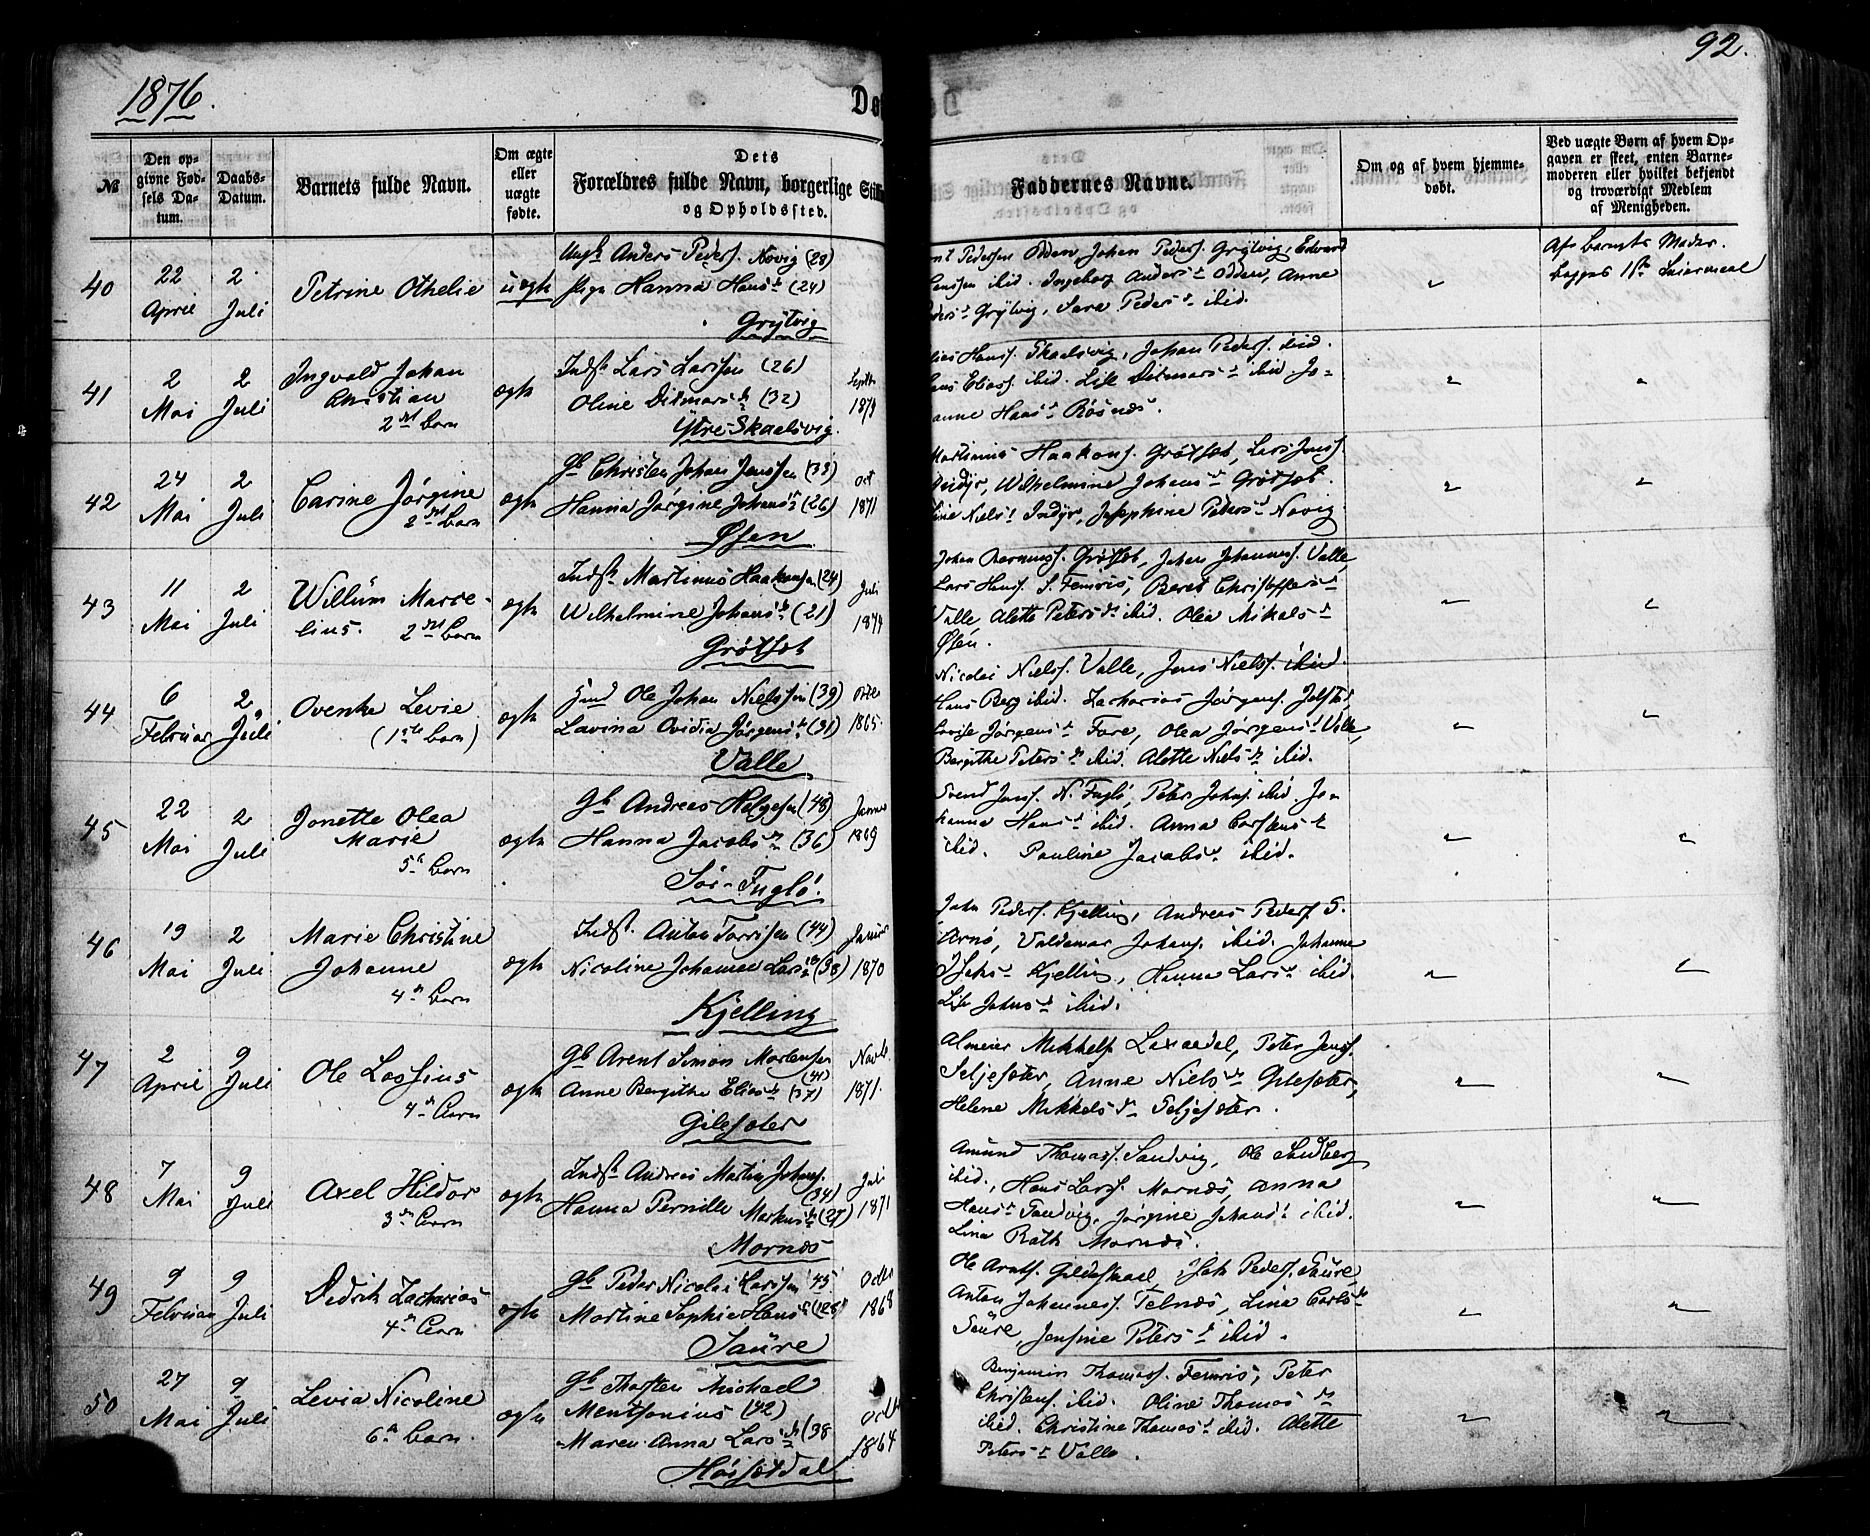 1876.
92.
Dø
№
Den op-
givne Fød-
sels Da-
tum.
Daabs-
Datum.
Barnets fulde Navn.
Om ægte
eller
uægte
fødte.
Dets
Forældres fulde Navn, borgerlige Still
og Opholdssted.
Faddernes Navne.
Om og af hvem hjemme-
døbt.
Ved uægte Børn af hvem Op-
gaven er skeet, enten Barne-
moderen eller hvilket bekjendt
og troværdigt Medlem
af Menigheden.
40
22
April
2
Juli
Petrine Othelie
uægte
Ungk Anders Peders. Novig (28)
Pige Hanna Hansd (24)
Grytvig
Pedersen Odden, Johan Peders. Grytvig, Edvard
Hanssen ibid. Ingeborg Andersd Odden, Anne
Pedersd Grytvig, Sara Pedersd ibid.
Afs Barnets Moder.
begges 1ste Leiermaal
41
2
Mai
2
Juli
Ingvald Johan
Christian
2det Barn
ægte
Indst Lars Larssen (26)
Oline Ditmarsd (32)
Ytre-Skaalsvig.
Septbr
1874
Elias Hans. Skaalsvig, Johan Peders. ibid.
Hans Elias. ibid. Lise Ditmarsd ibid. Jo-
hanne Hansd Røsnæs.
42
24
Mai
2
Juli
Carine Jørgine
2det Barn
ægte
Gb Christen Johan Jenssen (33)
Hanna Jørgine Johansdr (26)
Øsen
Oct
1871
Martinus Haakons. Grøtset, Lars Jens.
Indyr, Wilhelmine Johansd Grøtset.
Nielsd Indyr, Josephine Petersd Novig
43
11
Mai
2
Juli
Willum Marce-
lius. 2det Barn
ægte
Indst Martinus Haakonsen (24)
Wilhelmine Johansd (21)
Grøtset
Juli
1874
Johan Grøtset, Johan Johanness. Valle,
Lars Hans. S. Femris, Beret Christoffersd
Valle Alette Petersd ibid. Olea Mikalsd
Øsen.
44
6
Februar
2
Juli
Ovenke Levie
(1ste Barn)
ægte
Ole Johan Nielssen (39)
Lavina Ovidia Jørgensd (31)
Valle
Octbr
1865.
Nicolai Niels. Valle, Jens Niels. ibid.
Hans Berg ibid. Zacharias Jørgens.
Jørgensd Fore, Olea Jørgensd Valle,
Bergithe Petersd ibid. Alette Nielsd ibid.
45
22
Mai
2
Juli
Jonette Olea
Marie
5te Barn
ægte
Gb Andreas Helgesen (48)
Hanna Jacobsd (36)
Sør-Fuglø.
Januar
1869
Svend Jens. N. Fuglø, Peter Johns. ibid. Jo-
hanna Hansd ibid. Anna Carstensd
ibid. Pauline Jacobsd ibid.
46
19
Mai
2
Juli
Marie Christine
Johanne
4de Barn
ægte
Indst. Anton Torrisen (44)
Nicoline Johanna Larsd (38)
Kjelling
Januar
1870
John Peders. Kjelling, Andreas Peders. S.
Arnø, Valdemar Johans. ibid. Johanne
Kjelling, Hanna Larsd ibid.
Lise Johnsd ibid.
47
2
April
9
Juli
Ole Lossius
4de Barn
ægte
Gb Arent Simon Mortensen
(41)
Anne Bergithe Eliasd (37)
Gilesæter
Novbr
1871.
Almeier Mikkels. Laxaadal, Peter Jens.
Seljesæter, Anne Nielsd Gilesæter,
Helene Mikkelsd Seljesæter.
48
7
Mai
9
Juli
Axel Hildor
3de Barn
ægte
Indst. Andreas Martin Johns.
(34)
Hanna Pernille Markusd (27)
Mornæs
Juli
1871
Amund Thomass. Sandvig, Ole Lindberg
ibid., Hans Lars. Mornæs, Anna
Hansd Sandvig, Jørgine Johansd ibid.
Lina Rath Mornæs.
49
9
Februar
9
Juli
Didrik Zacharias
4de Barn
ægte
Gb Peder Nicolai Larssen (45)
Martine Sophie Hansd (28)
Saure
Octbr
1868
Ole Arnts. Gildeskaal, Joh. Peders. Saure,
Anton Johanness. Telnæs, Lina Carlsd
Saure, Josfine Petersd ibid.
50
27
Mai
9
Juli
Levia Nicoline
6te Barn.
ægte
Gb Thorsten Michael
Mentsonius (42)
Maren Anna Larsd (38
Høisetdal
Octbr
1864
Benjamin Thomass. Femris, Peter
Christens. ibid. Oline Thomasd
ibid. Christine Thomasd ibid. Alette
Petersd Valle.